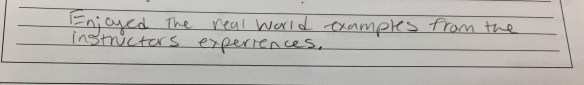 Enjoyed The real world examples from the
instructors experiences.